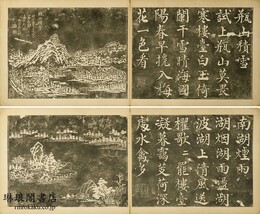 瓶山積雪
試上瓶山莫畏
寒樓臺白玉倚
闌干雪晴海國
陽春早攙入梅
花一色看
南湖煙雨
湖烟湖雨盪湖
波湖上清風送
櫂歌〻罷樓臺
凝暮靄芰荷深
處水禽多
琳琅閣書店
rinrokaku.co.jp